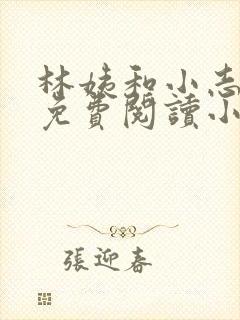 林姨和小志
免費閱讀小
張迎春